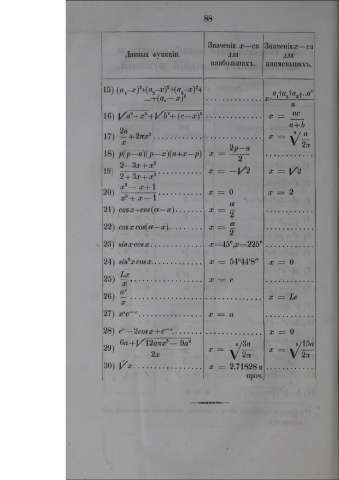 88
Данныя функціи.
Значенія x—са для наибольшихъ.
Значенія x—са для наименьшихъ.
15) (a₁—x)²+(a₂—x)²+(a₃—x)²+ ...+(aₙ—x)² x= a₁+a₂+..aⁿ / n
16) √a²+x²+√b²+(c—x)² x = ac / a+b
17) 2a/x +2πx² x = ³√ a/2π
18) p(p—a)(p—x)(a+x—p) x = 2p—a / 2
19) 2—3x+x² / 2+3x+x² x = —√2 x = √2
20) x²—x+1 / x²+x—1 x = 0 x = 2
21) cosx+cos(α—x) x = α/2
22) cosx cos(α—x) x = α/2
23) sinx cosx x=45°,x=225°
24) sin²x cosx x = 54°44′8″ x = 0
25) Lx / x x = e
26) aˣ / x x = Le
27) xᵃe⁻ˣ x = a
28) eˣ—2cosx+e⁻ˣ x = 0
29) 6a+√12aπx²—9a² / 2x x = √3a/2π x = √15a/2π
30) √x x = 2,71828 и проч.